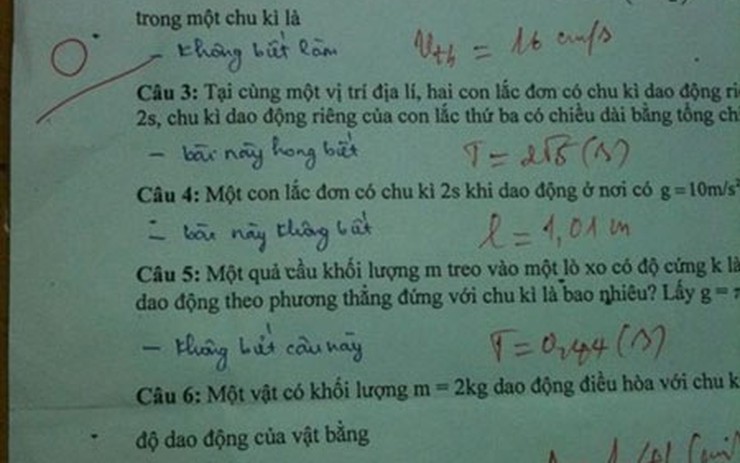 trong một chu kì là
- không biết làm
Vth = 16 cm/s
Câu 3: Tại cùng một vị trí địa lí, hai con lắc đơn có chu kì dao động
2s, chu kì dao động riêng của con lắc thứ ba có chiều dài bằng tổng
- bài này hong biết
T = 2√5 (s)
Câu 4: Một con lắc đơn có chu kì 2s khi dao động ở nơi có g = 10m/s²
- bài này không biết
l = 1,01 m
Câu 5: Một quả cầu khối lượng m treo vào một lò xo có độ cứng k là
dao động theo phương thẳng đứng với chu kì là bao nhiêu? Lấy g =
- không biết câu này
T = 0,44 (s)
Câu 6: Một vật có khối lượng m = 2kg dao động điều hòa với chu k
độ dao động của vật bằng